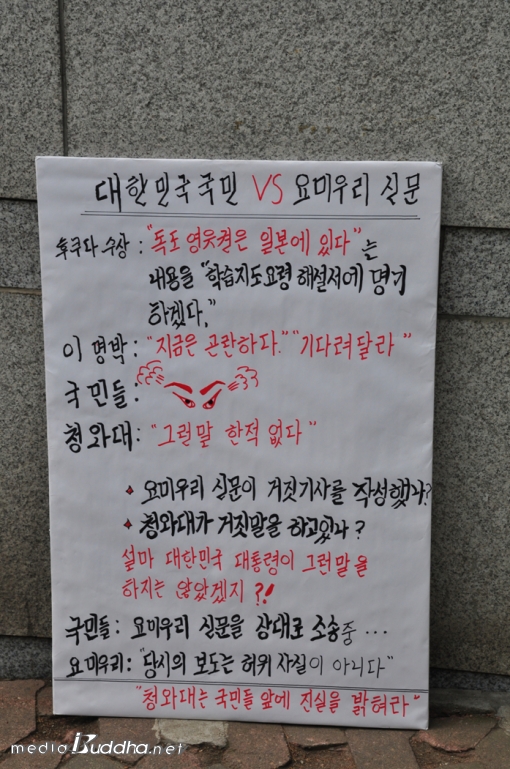 대한민국국민 VS 요미우리 신문
후쿠다 수상 : "독도 영유권은 일본에 있다"는
내용을 "학습지도요령 해설서에 명기
하겠다."
이 명박 : "지금은 곤란하다." "기다려달라"
국민들 :
청와대 : "그런말 한적 없다"
요미우리 신문이 거짓기사를 작성했나?
청와대가 거짓말을 하고있나?
설마 대한민국 대통령이 그런말을
하지는 않았겠지 ?!
국민들 : 요미우리 신문을 상대로 소송중 ...
요미우리 : "당시의 보도는 허위사실이 아니다"
"청와대는 국민들 앞에 진실을 밝혀라"
mediaBuddha.net